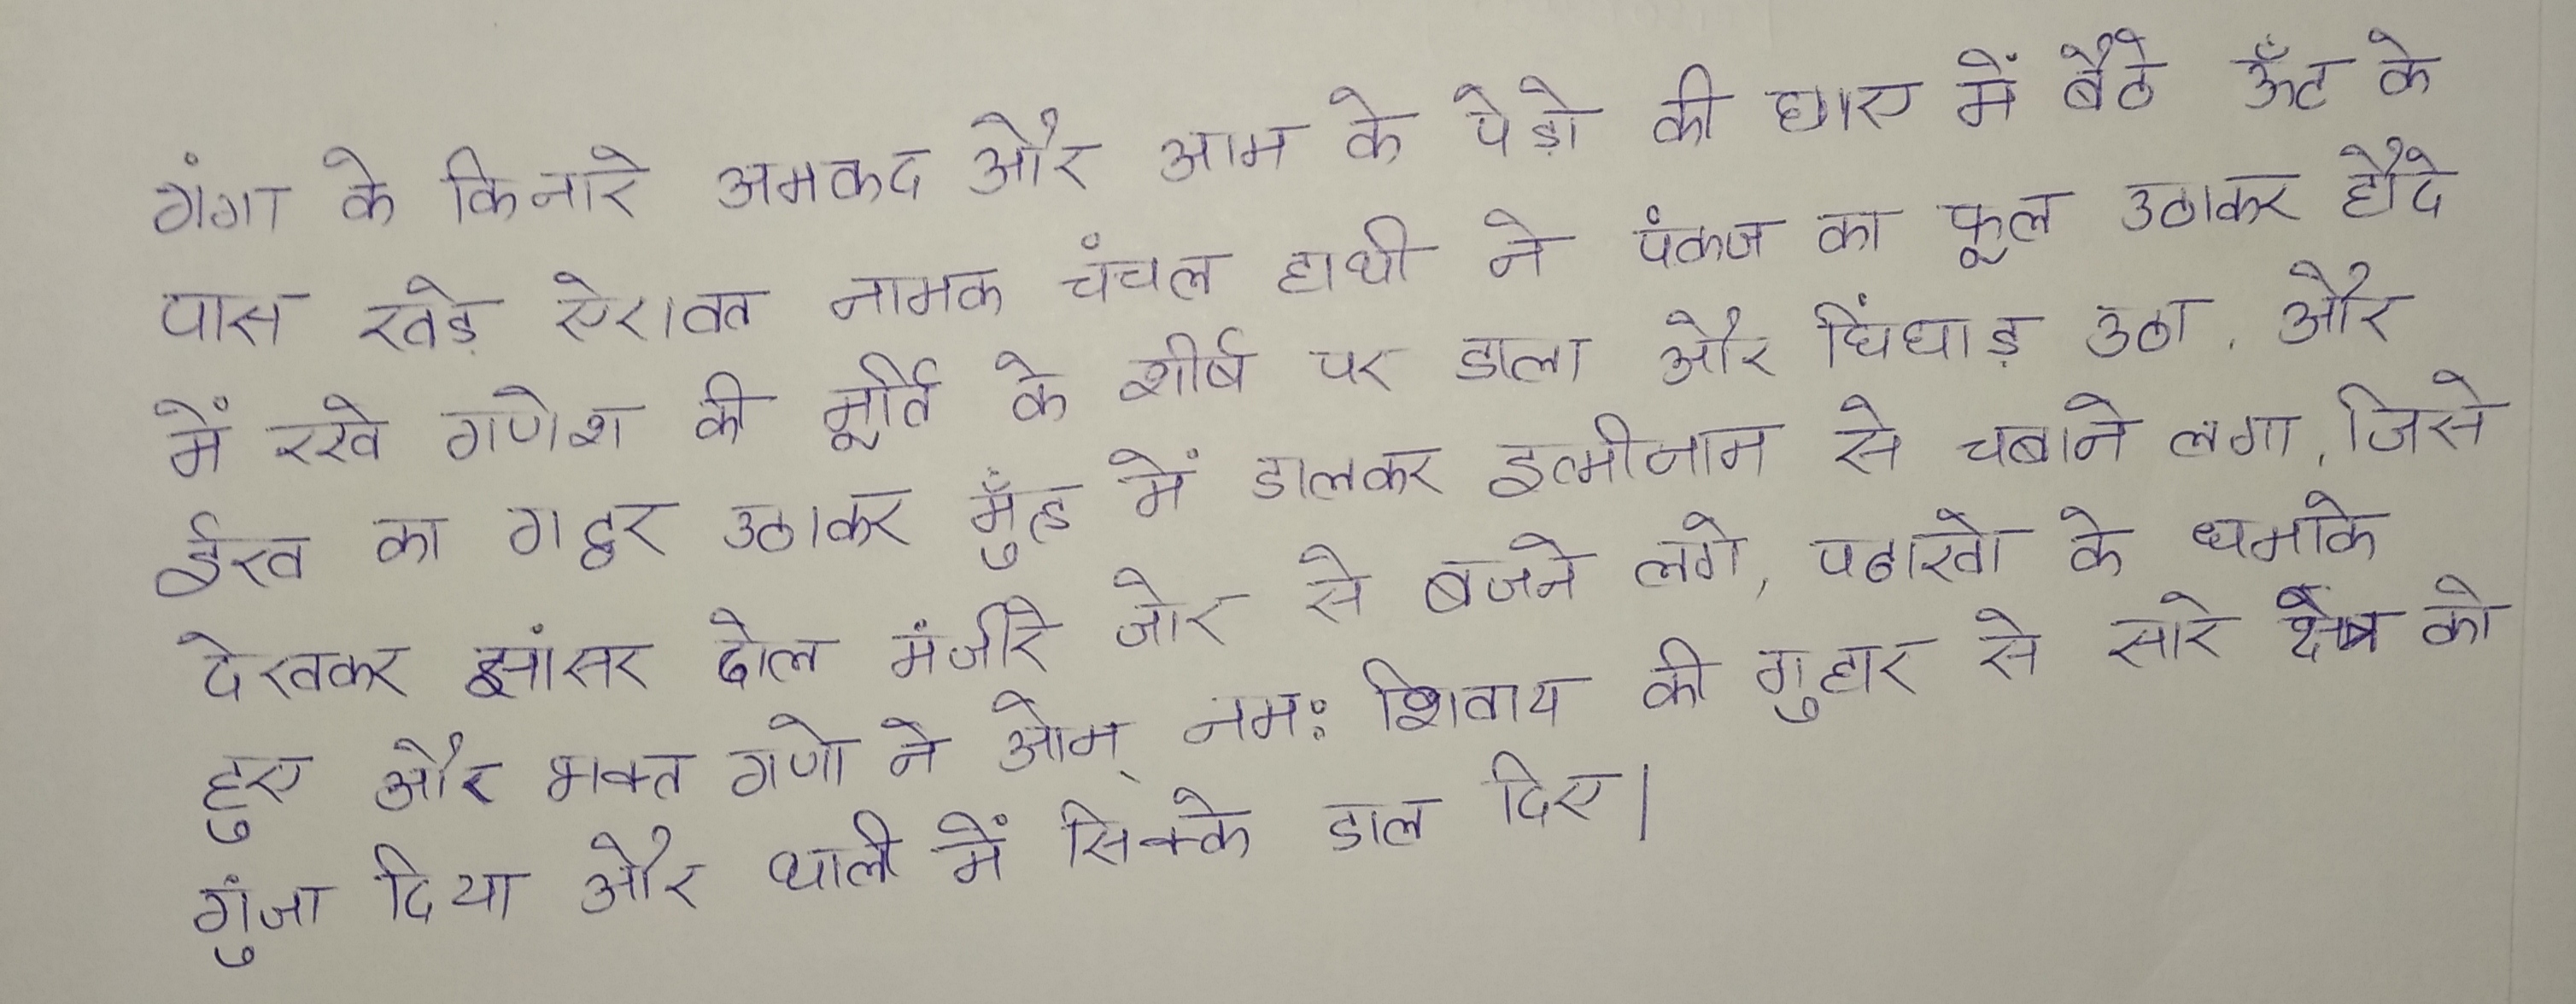 गंगा के किनारे अमरूद और आम के पेड़ो की छाए में बैठे ऊँट के
पास खड़े ऐरावत नामक चंचल हाथी ने पंकज का फूल उठाकर हौदे
में रखे गणेश की मूर्ति के शीर्ष पर डाला और चिंघाड़ उठा, और
ईख का गट्ठर उठाकर मुँह में डालकर इत्मीनाम से चबाने लगा, जिसे
देखकर झांसर ढोल मंजीरे जोर से बजने लगे, पटाखो के धमाके
हुए और भक्त गणो ने ओम् नमः शिवाय की गुहार से सारे क्षेत्र को
गुंजा दिया और थाली में सिक्के डाल दिए।